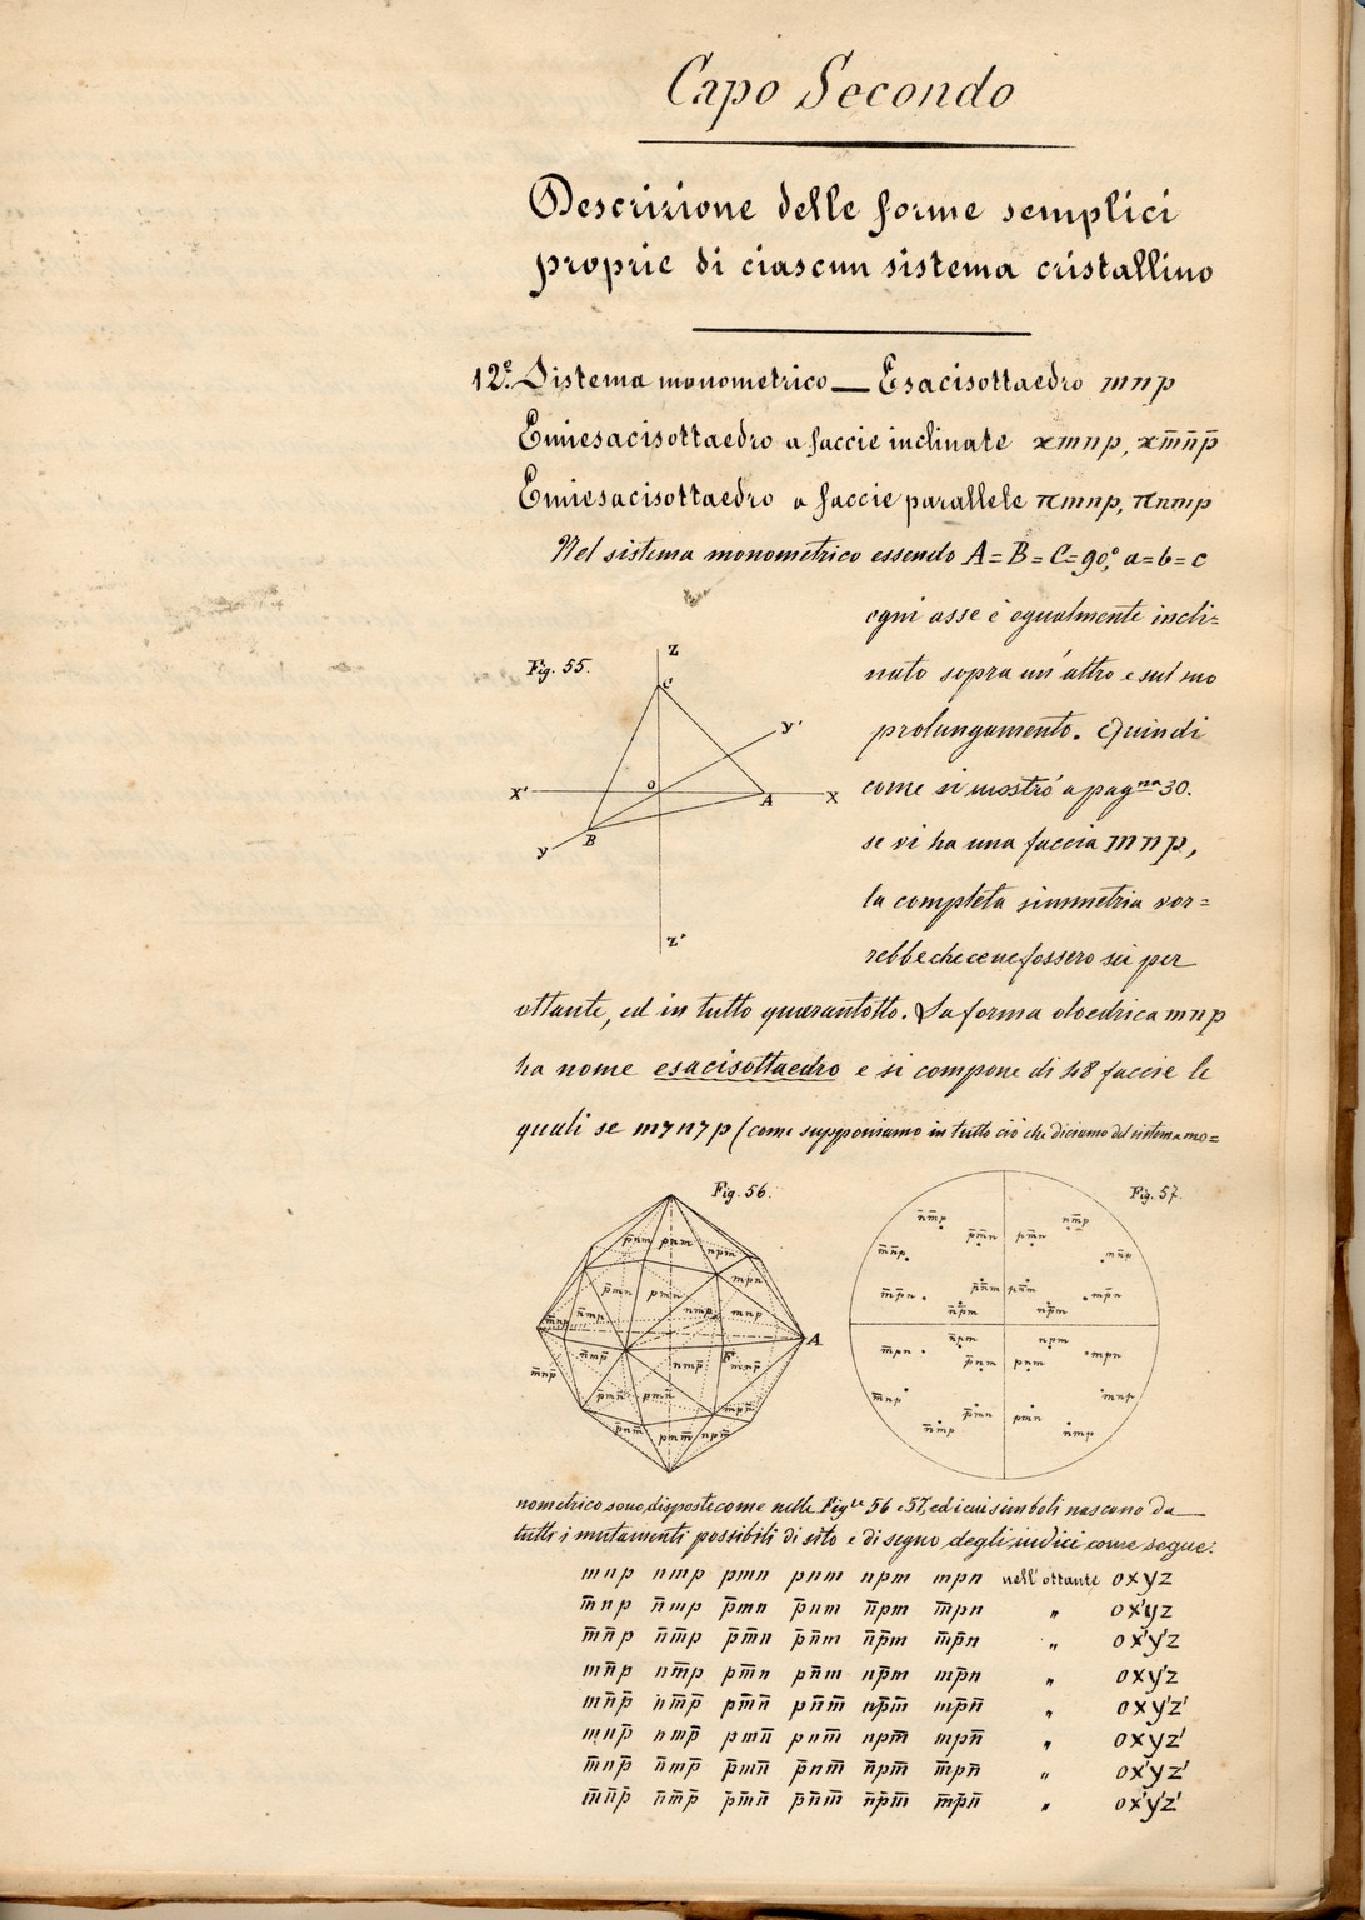 Capo Secondo
Descrizione delle forme semplici
proprie di ciascun sistema cristallino
12.º Sistema monometrico — Esacisottaedro mnp
Emiesacisottaedro a faccie inclinate xmnp, xm̄n̄p̄
Emiesacisottaedro a faccie parallele πmnp, πnmp
Nel sistema monometrico essendo A=B=C=90,° a=b=c
ogni asse è egualmente incli=
nato sopra un'altro e sul suo
prolungamento. Quindi
come si mostrò a pag.na 30.
se vi ha una faccia mnp,
la completa simmetria vor=
rebbe che ce ne fossero sei per
Fig. 55.
Z
C
Y'
X'
O
A
X
B
Y
Z'
ottante, ed in tutto quarantotto. La forma oloedrica mnp
ha nome esacisottaedro e si compone di 48 faccie le
quali se m7n7p (come supponiamo in tutto ciò che diciamo del sistema mo=
Fig. 56.
p̄nm pnm npm
mpn
p̄mn pmn
n̄mp nmp mnp
m̄np
A
n̄mp̄ nmp̄ mnp̄
m̄np̄
p̄mn̄ pmn̄ mpn̄
p̄nm̄ pnm̄ npm̄
Fig. 57.
n̄m̄p p̄m̄n pm̄n nm̄p
m̄n̄p mn̄p
m̄p̄n p̄n̄m pn̄m mp̄n
n̄p̄m np̄m
m̄pn n̄pm npm mpn
p̄nm pnm
m̄np mnp
n̄mp p̄mn pmn nmp
nometrico sono disposte come nelle Fig.re 56 e 57, ed i cui simboli nascono da
tutti i mutamenti possibili di sito e di segno degli indici come segue:
mnp nmp pmn pnm npm mpn nell'ottante oxyz
m̄np n̄mp p̄mn p̄nm n̄pm m̄pn " ox'yz
m̄n̄p n̄m̄p p̄m̄n p̄n̄m n̄p̄m m̄p̄n " ox'y'z
mn̄p nm̄p pm̄n pn̄m np̄m mp̄n " oxy'z
mn̄p̄ nm̄p̄ pm̄n̄ pn̄m̄ np̄m̄ mp̄n̄ " oxy'z'
mnp̄ nmp̄ pmn̄ pnm̄ npm̄ mpn̄ " oxyz'
m̄np̄ n̄mp̄ p̄mn̄ p̄nm̄ n̄pm̄ m̄pn̄ " ox'yz'
m̄n̄p̄ n̄m̄p̄ p̄m̄n̄ p̄n̄m̄ n̄p̄m̄ m̄p̄n̄ " ox'y'z'